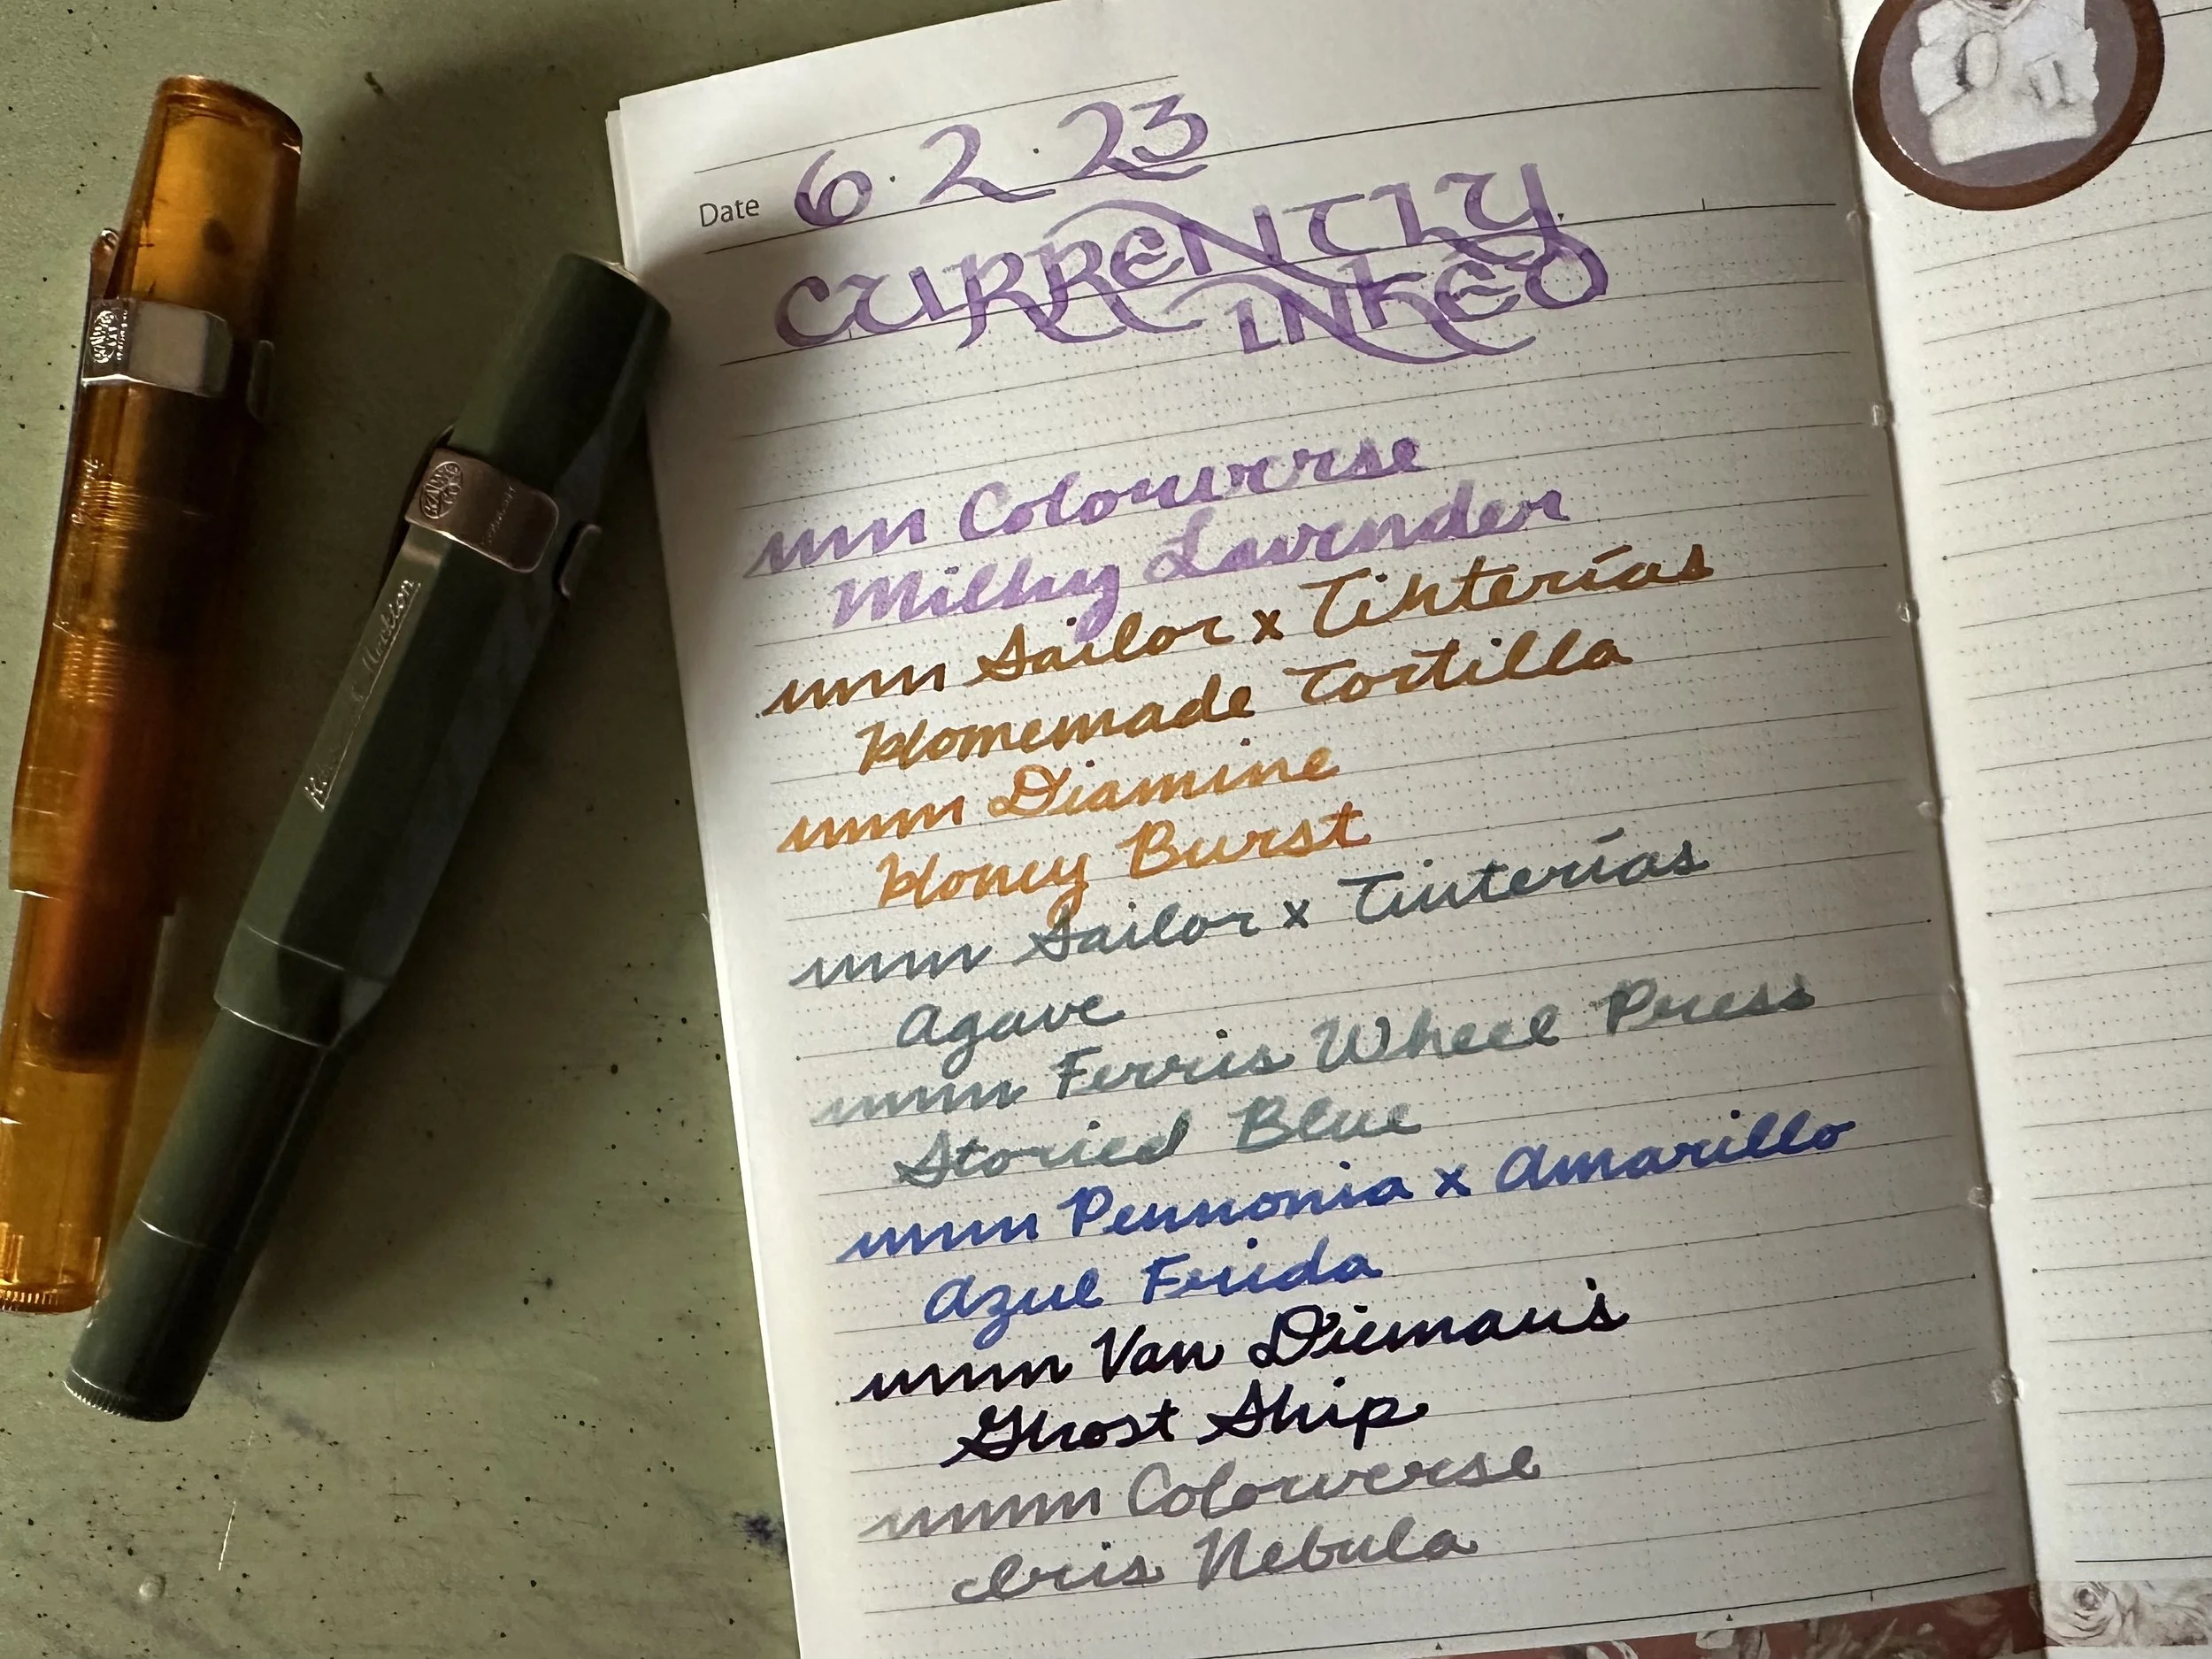 Date 6.2.23
CURRENTLY
INKED
Colorverse
Milky Lavender
Sailor x Tinterías
Homemade Tortilla
Diamine
Honey Burst
Sailor x Tinterías
Agave
Ferris Wheel Press
Storied Blue
Pennonia x Amarillo
Azul Frida
Van Dieman's
Ghost Ship
Colorverse
Iris Nebula